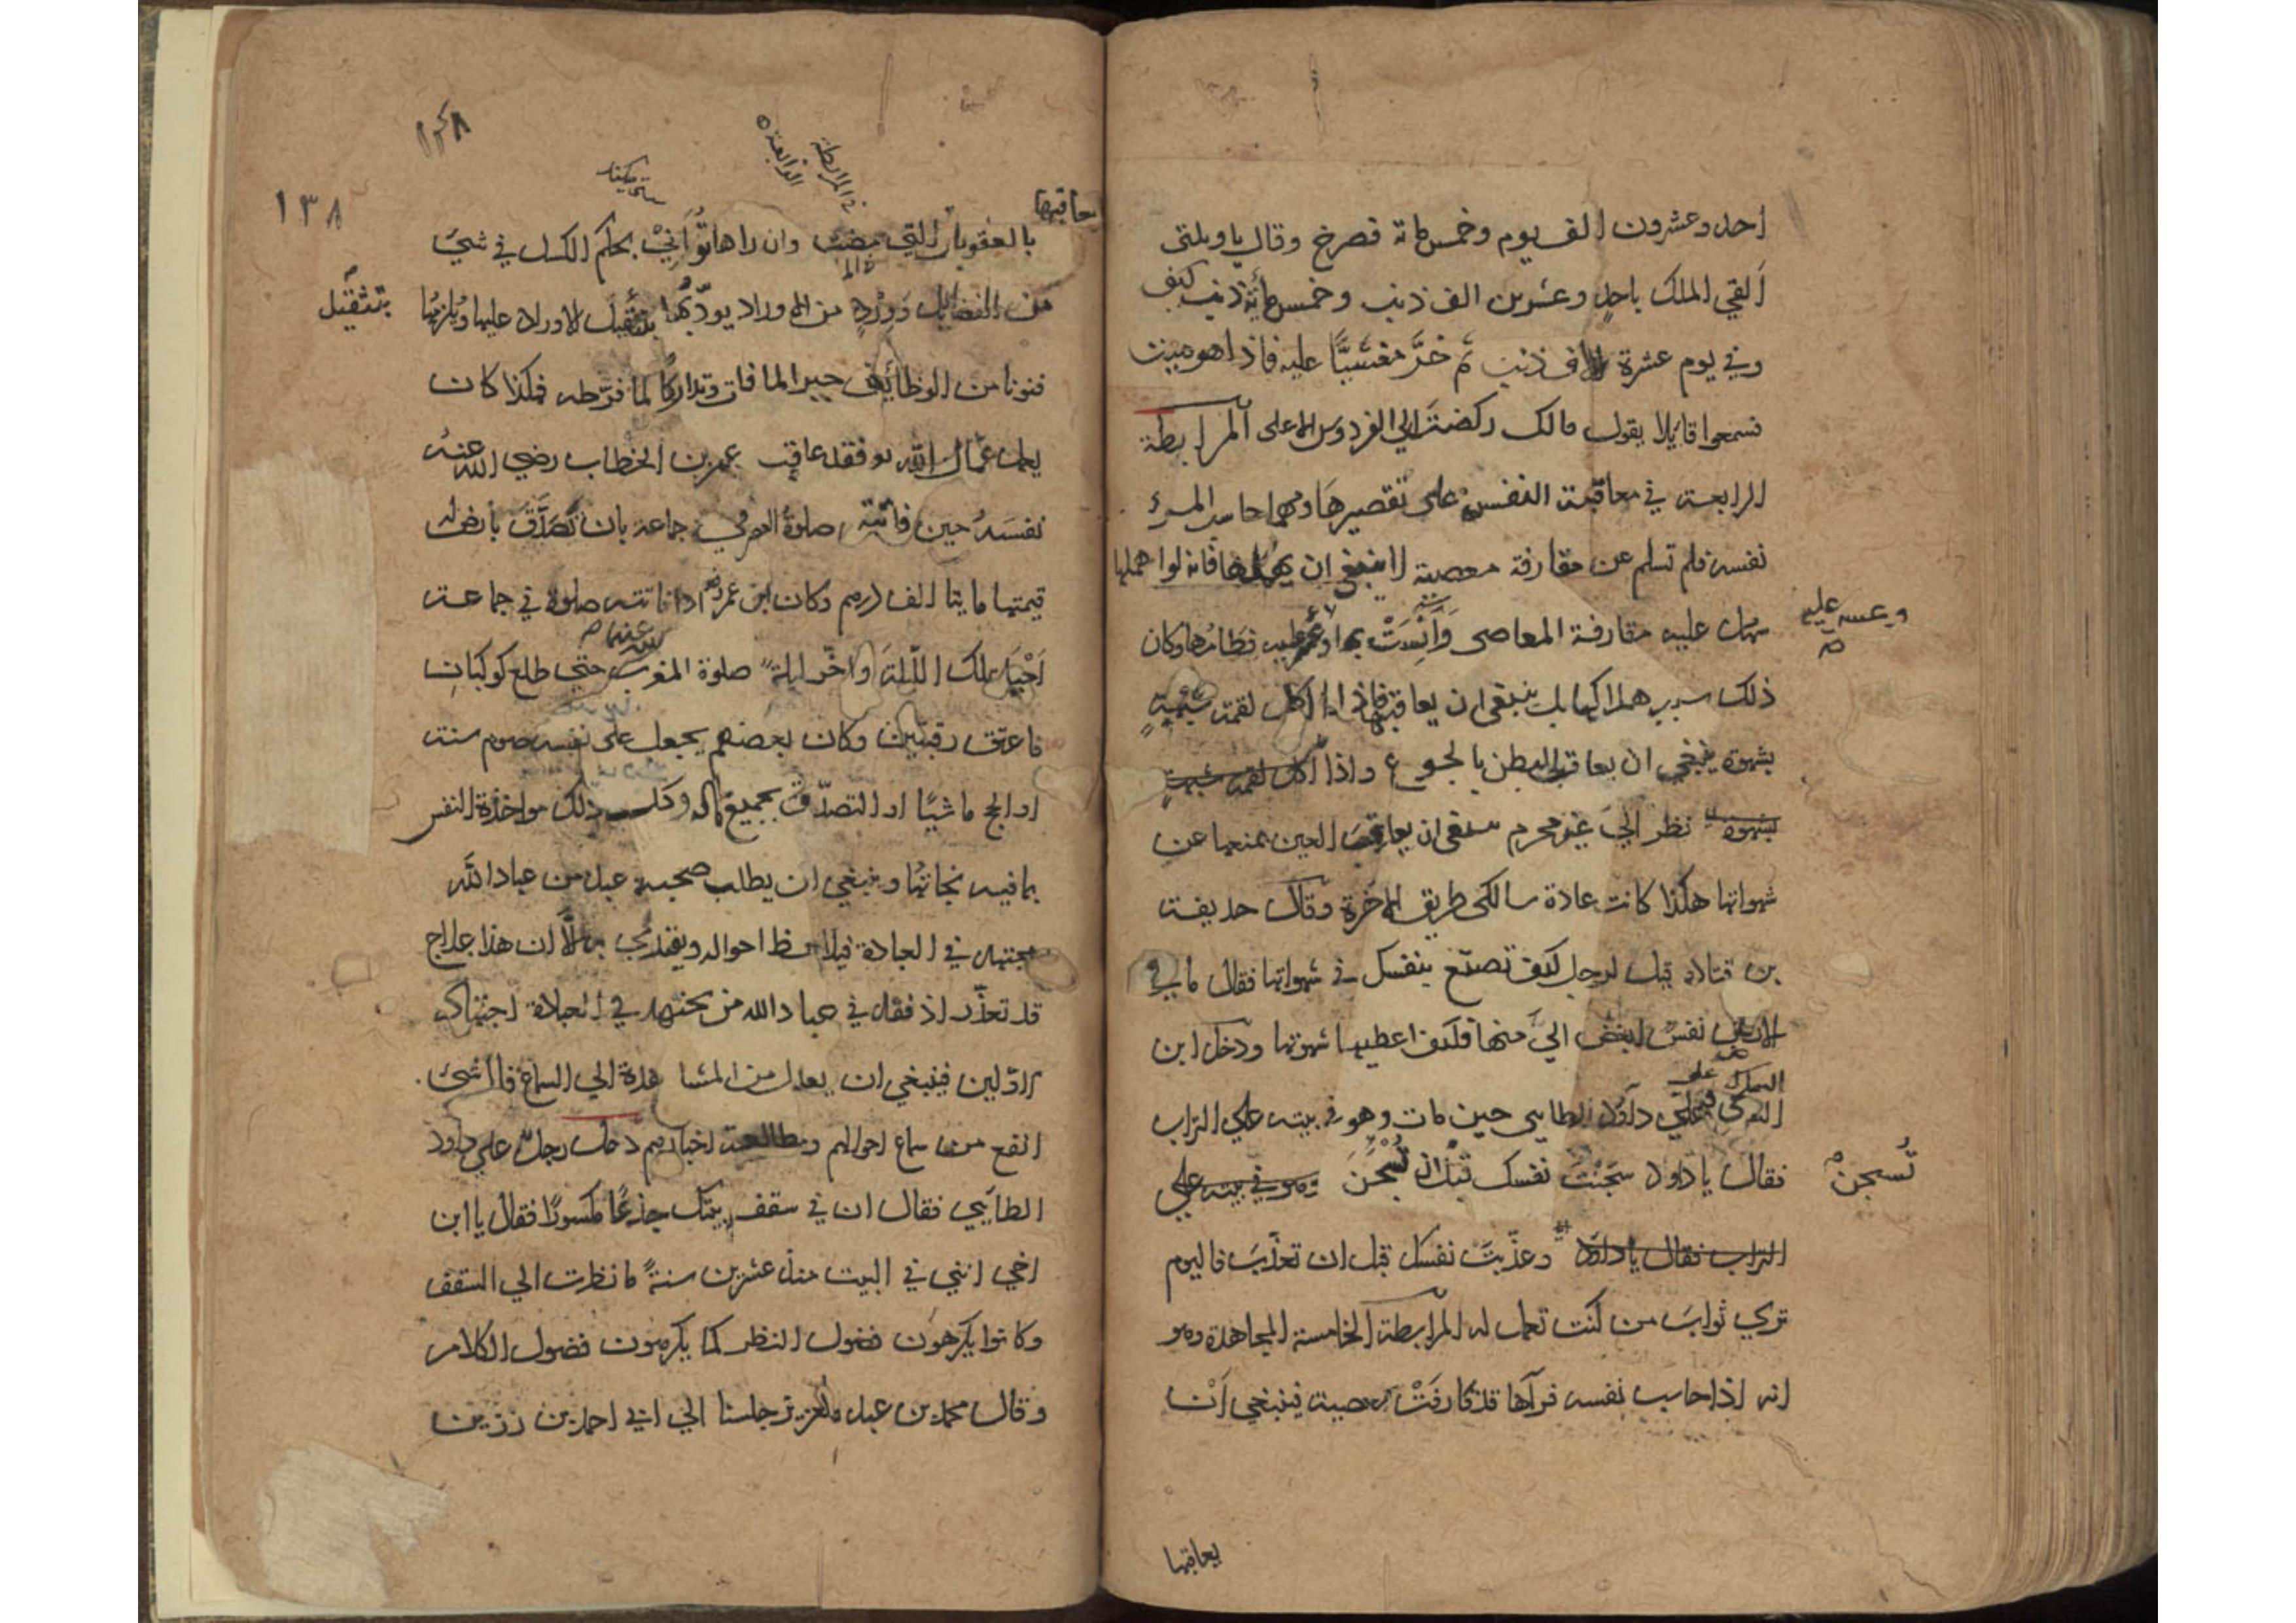 احد وعشرون الف يوم وخمس مائة فصرخ وقال ياويلتى
ألقي الملك باحدٍ وعشرين الف ذنب وخمس مائة ذنب كيف
وفي يوم عشرة الاف ذنب ثم خرَّ مغشيًّا عليه فاذا هو ميت
فسمعوا قايلا يقول مالك ركضتَ الي الفردوس الاعلى المرابطة
الرابعة في معاقبة النفس على تقصيرهَا ومهما حاسب المرء
نفسه فلم تسلم عن مقارفة معصية لا ينبغي ان يهملها فانه لو اهملها
سهل عليه مقارفة المعاصى وَأَنِسَتْ بها وعسر عليه فطامُها وكان
وعسر عليه
صح
ذلك سبب هلاكها بل ينبغى ان يعاقبها فاذا اكل لقمة شبهةٍ
بشهوة ينبغي ان يعاقب البطن بالجوع واذا اكل لقمة شبهةٍ
بشهوة نظر اليَ غير محرم ينبغى ان يعاقبَ العين بمنعها عن
شهواتها هكذا كانت عادة سالكى طريق الاخرة وقال حذيفة
بن قتادة قيل لرجل كيف تصنع بنفسك في شهواتها فقال ما في
الارض نفسٌ ابغض اليَّ منها فكيف اعطيها شهوتها ودخل ابن
السماك على
داود الطايى حين مات وهو في بيته علي التراب
فقال يا داود سَجَنْتَ نفسك قبل ان تُسْجَنَ وهو في بيته علي
تُسجن
التراب فقال يا داود وعذّبتَ نفسك قبل ان تعذّبَ فاليوم
تري ثوابَ من كنت تعمل له المرابطة الخامسة المجاهدة وهو
انه اذا حاسب نفسه فرآها قد قارفَتْ معصية فينبغي أنْ
يعاقبها
١٣٨
١٣٨
المرابطة
الرابعة
يعاقبها
بالعقوبات التي مضت وان راها تُوَانِيْ بحكم الكسل في شيَ
من الفضايل وَوِرْدٍ من الاوراد يودّبُها بتثقيل الاوراد عليها ويُلزمُها
بتثقيل
فنونا من الوظايف جبرا لما فات وتداركًا لما فرّطه فهكذا كان
يعمل عُمّال الله فقد عاقب عمر بن الخطاب رضي الله عنه
نفسَهُ حين فاتته صلوة العصر في جماعة بان تصدَّق بأرض له
قيمتها مايتا الف درهم وكان ابن عمر اذا فاتته صلوة في جماعة
أحْيَا تلك اللّيلةَ واخّر ليلةً صلوة المغرب حتي طلع كوكبان
فاعتق رقبتين وكان بعضهم يجعل على نفسه صوم سنة
او الحج ماشيًا او التصدّق بجميع ماله وكل ذلك مواخذة النفس
بما فيه نجاتُها وينبغي ان يطلب صحبة عبد من عباد الله
مجتهد في العبادة فيلاحظ احواله ويقتدي به الَّا ان هذا علاج
قد تعذّر اذ فقد في عباد الله من يجتهد في العبادة اجتهاد
الاوّلين فينبغي ان يعدل من المشاهدة الي السماع فلا شئ
انفع من سماع احوالهم ومطالعة اخبارهم دخل رجلٌ علي داود
الطايي فقال ان في سقف بيتك جذعًا مكسورًا فقال يا ابن
اخي انني في البيت منذ عشرين سنةً ما نظرت الي السقف
وكانوا يكرهون فضول النظر كما يكرهون فضول الكلام
وقال محمد بن عبد العزيز جلسنا الي احمد بن رزين